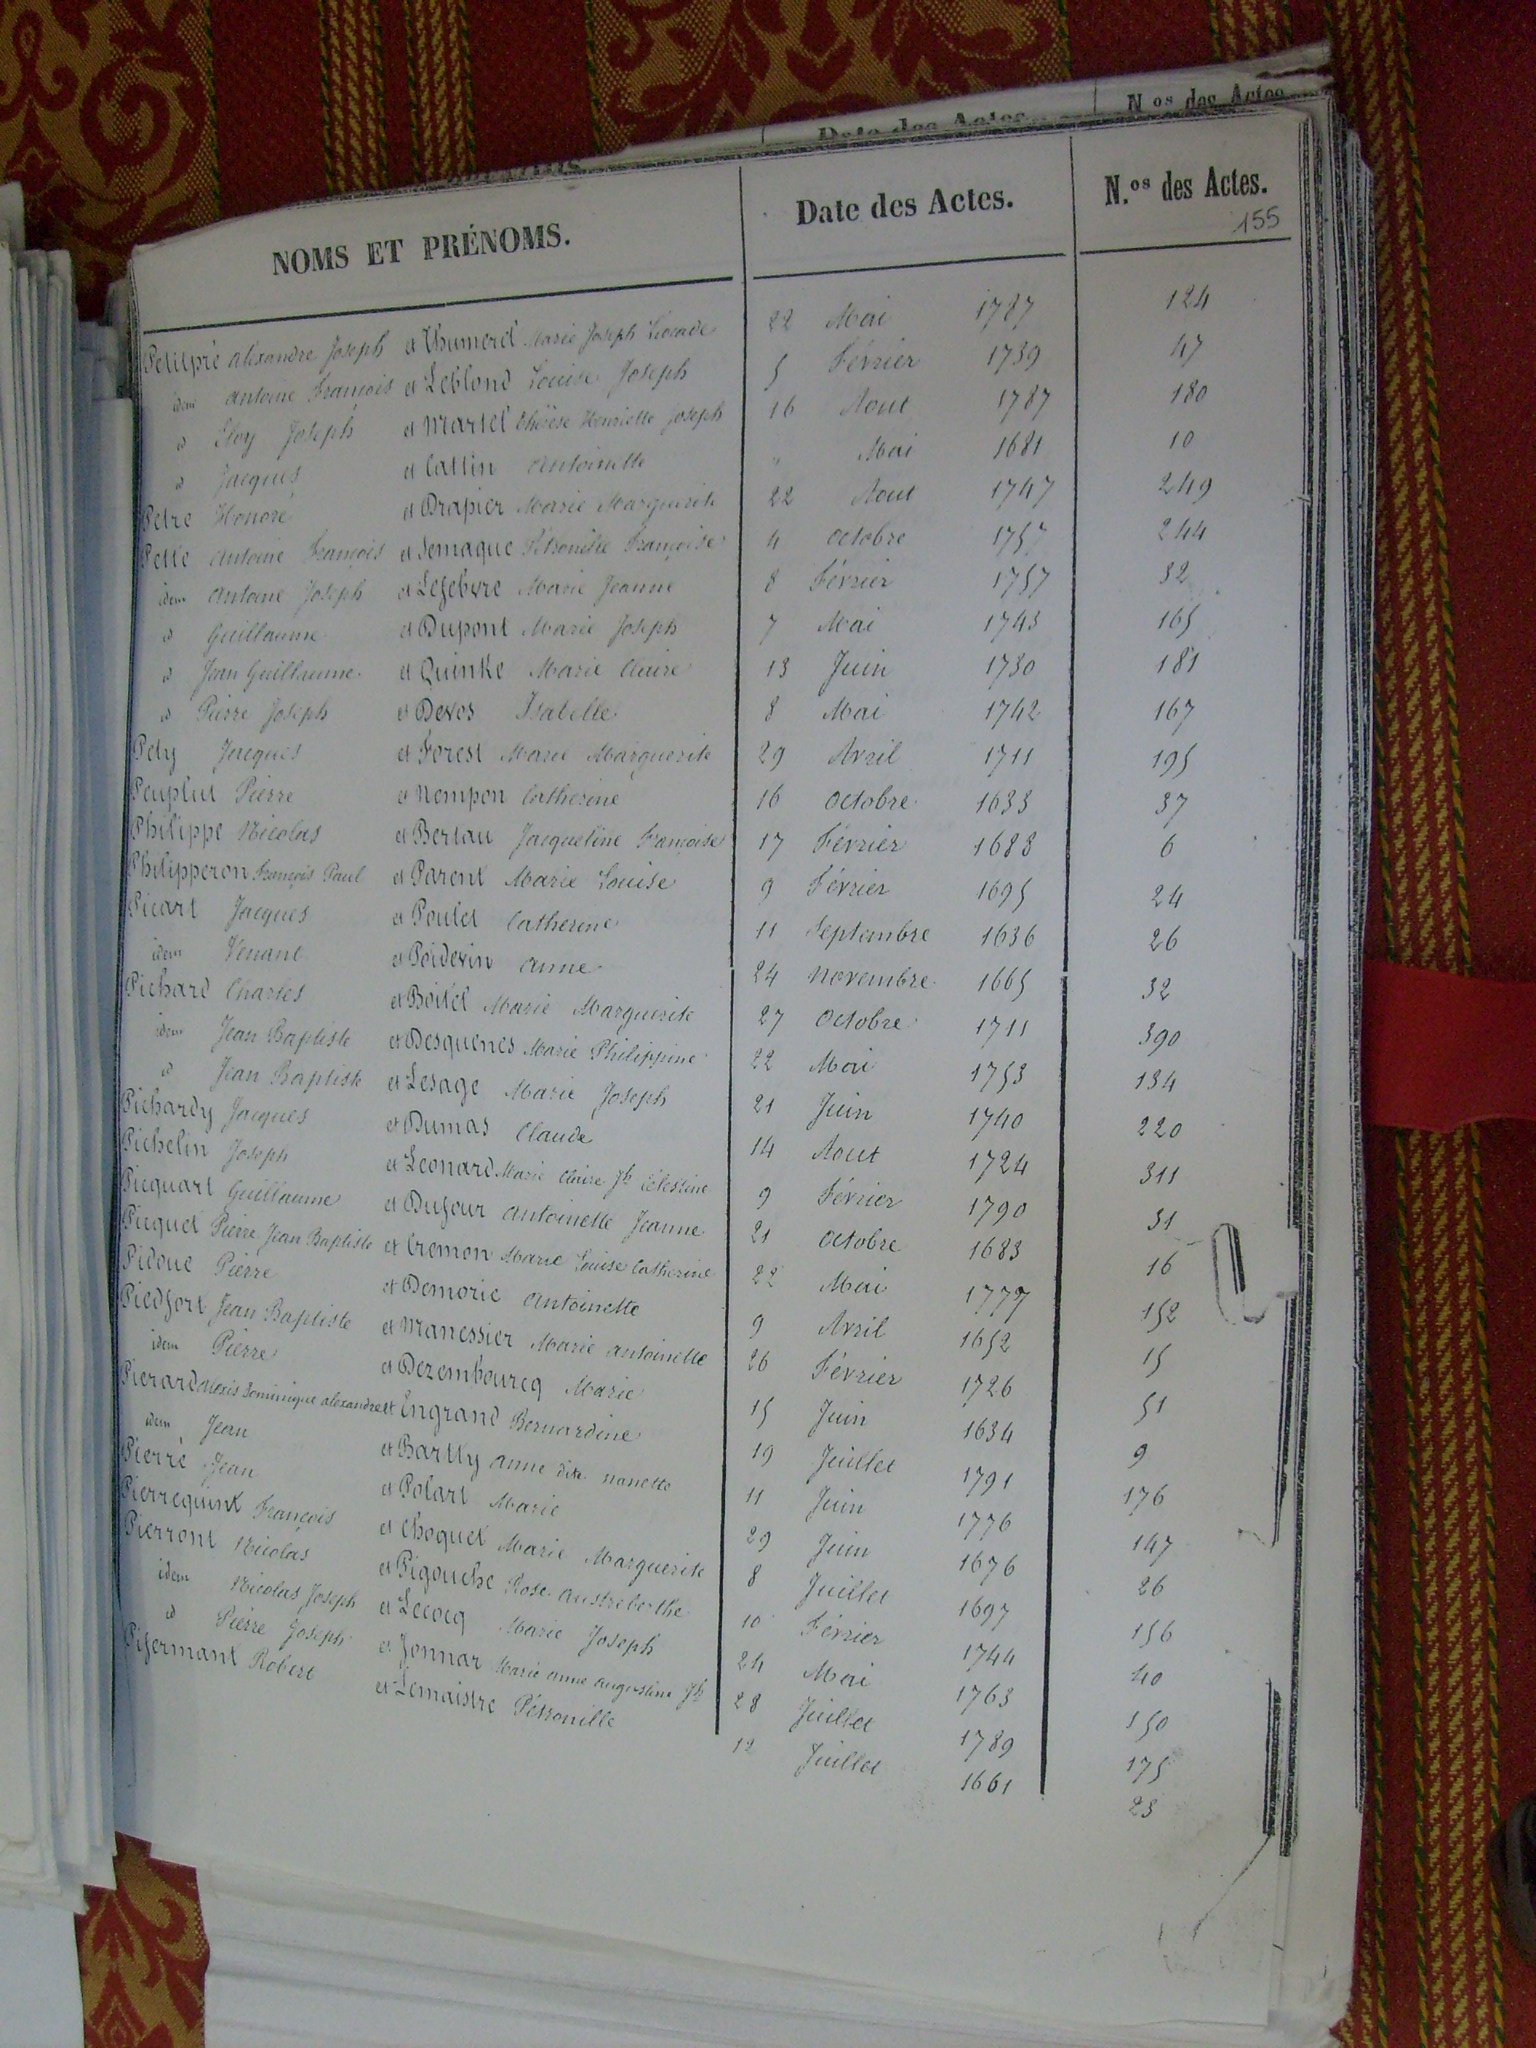 Date des Actes N.os des Actes
NOMS ET PRÉNOMS. Date des Actes. N.os des Actes.
155
Petitpré Alexandre Joseph et Thumerel Marie Joseph Léocade 22 Mai 1787 124
idem Antoine François et Leblond Louise Joseph 5 Février 1739 47
id Eloy Joseph et Martel Thérèse Henriette Joseph 16 Aout 1787 180
id Jacques et Cattin Antoinette " Mai 1681 10
Petre Honoré et Drapier Marie Marguerite 22 Aout 1747 249
Pette Antoine François et Semaque Pétronille Françoise 4 octobre 1757 244
idem Antoine Joseph et Lefebvre Marie Jeanne 8 Février 1757 32
id Guillaume et Dupont Marie Joseph 7 Mai 1743 165
id Jean Guillaume et Quinke Marie Claire 13 Juin 1730 181
id Pierre Joseph et Devos Isabelle 8 Mai 1742 167
Pety Jacques et Forest Marie Marguerite 29 Avril 1711 195
Peuplut Pierre et Nempon Catherine 16 octobre 1633 37
Philippe Nicolas et Bertau Jacqueline Françoise 17 Février 1688 6
Philipperon François Paul et Parent Marie Louise 9 Février 1695 24
Picart Jacques et Poulet Catherine 11 Septembre 1636 26
idem Venant et Poidevin Anne 24 novembre 1665 32
Pichard Charles et Boitel Marie Marguerite 27 octobre 1711 390
idem Jean Baptiste et Desquenes Marie Philippine 22 Mai 1753 134
id Jean Baptiste et Lesage Marie Joseph 21 Juin 1740 220
Pichardy Jacques et Dumas Claude 14 Aout 1724 311
Pichelin Joseph et Leonard Marie Claire Jh Célestine 9 Février 1790 31
Picquart Guillaume et Dufour Antoinette Jeanne 21 octobre 1683 16
Picquet Pierre Jean Baptiste et Cremon Marie Louise Catherine 22 Mai 1777 152
Pidoue Pierre et Demorie Antoinette 9 Avril 1652 15
Piedfort Jean Baptiste et Manessier Marie Antoinette 26 Février 1726 51
idem Pierre et Dezembourcq Marie 15 Juin 1634 9
Pierard Alexis Dominique Alexandre et Engrand Bernardine 19 Juillet 1791 176
idem Jean et Bartly Anne dite nanette 11 Juin 1776 147
Pierré Jean et Polart Marie 29 Juin 1676 26
Pierrequint François et Choquet Marie Marguerite 8 Juillet 1697 156
Pierront Nicolas et Pigouche Rose Austreberthe 10 Février 1744 40
idem Nicolas Joseph et Lecocq Marie Joseph 24 Mai 1763 150
id Pierre Joseph et Jonnar Marie Anne Augustine Jh 28 Juillet 1789 175
Pifermant Robert et Lemaistre Pétronille 12 Juillet 1661 23